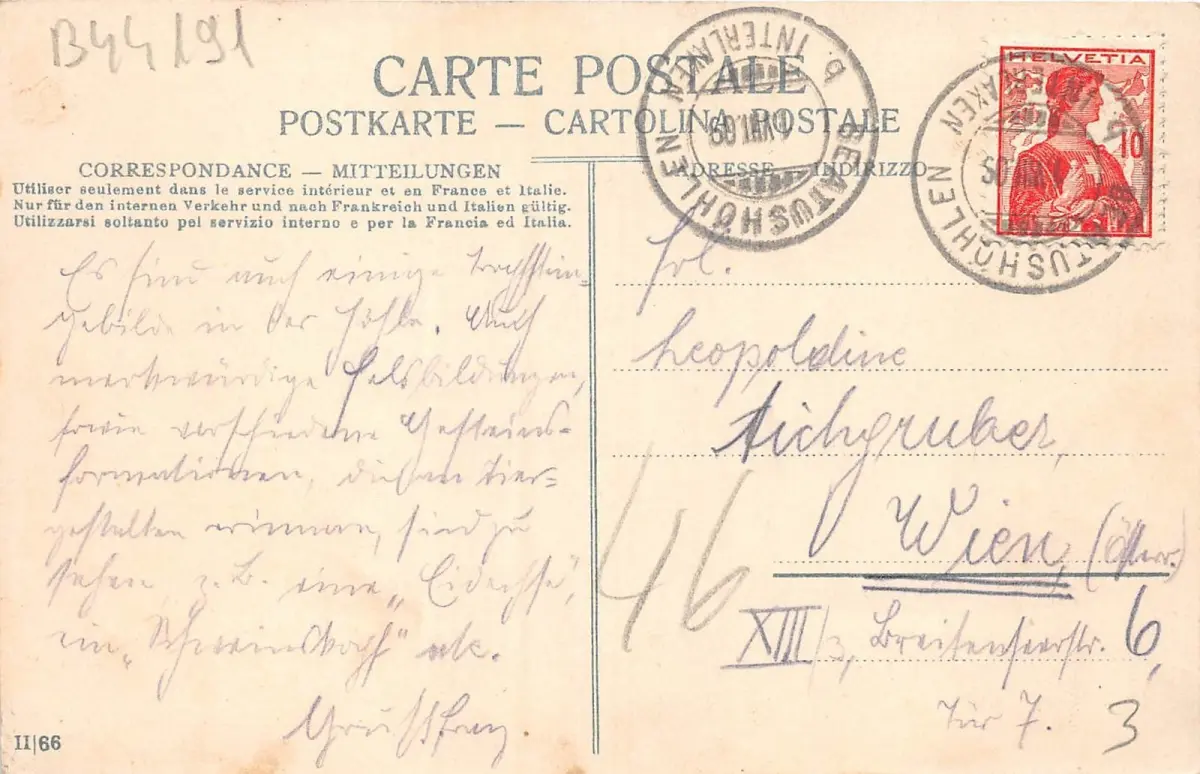 B44191
CARTE POSTALE
POSTKARTE — CARTOLINA POSTALE
CORRESPONDANCE — MITTEILUNGEN
Utiliser seulement dans le service intérieur et en France et Italie.
Nur für den internen Verkehr und nach Frankreich und Italien gültig.
Utilizzarsi soltanto pel servizio interno e per la Francia ed Italia.
Es sind auch einige Tropfstein-
gebilde in der Höhle. Auch
merkwürdige Felsbildungen,
sowie verschiedene Gesteins-
formationen, die an Tier-
gestalten erinnern, sind zu
sehen z.B. eine „Eidechse",
ein „Schweinskopf" etc.
Gruß Franz
II|66
BEATUSHÖHLEN
b. INTERLAKEN
HELVETIA
10
BEATUSHÖHLEN
b. INTERLAKEN
ADRESSE — INDIRIZZO
Frl.
Leopoldine
Aichgruber,
Wien, (Österr.)
XIII/3, 6,
Tür 7.
46
3